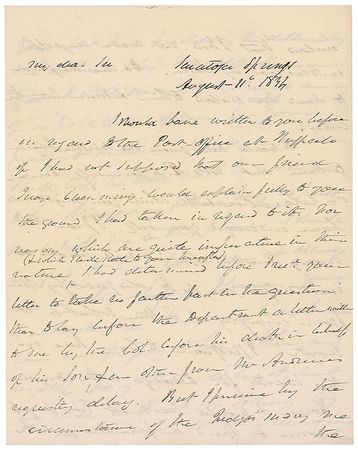 My dear Sir Saratoga Springs
August 11t. 1834
I would have written to you before
in regard to the Post office at Buffalo
if I had not supposed that our friend
Judge would explain fully to you
the ground I had taken in regard to it. For
reasons which are quite imperative in their
(& which I will state to you hereafter)
nature I had determined before I recd. your
letter to take no further part in the question
than to lay before the Department a letter written
to me by the Col. before his death in behalf
of his Son & an other from Mr Andrews
requesting delay. But I presume by the
circumstance of the Judge's me
the